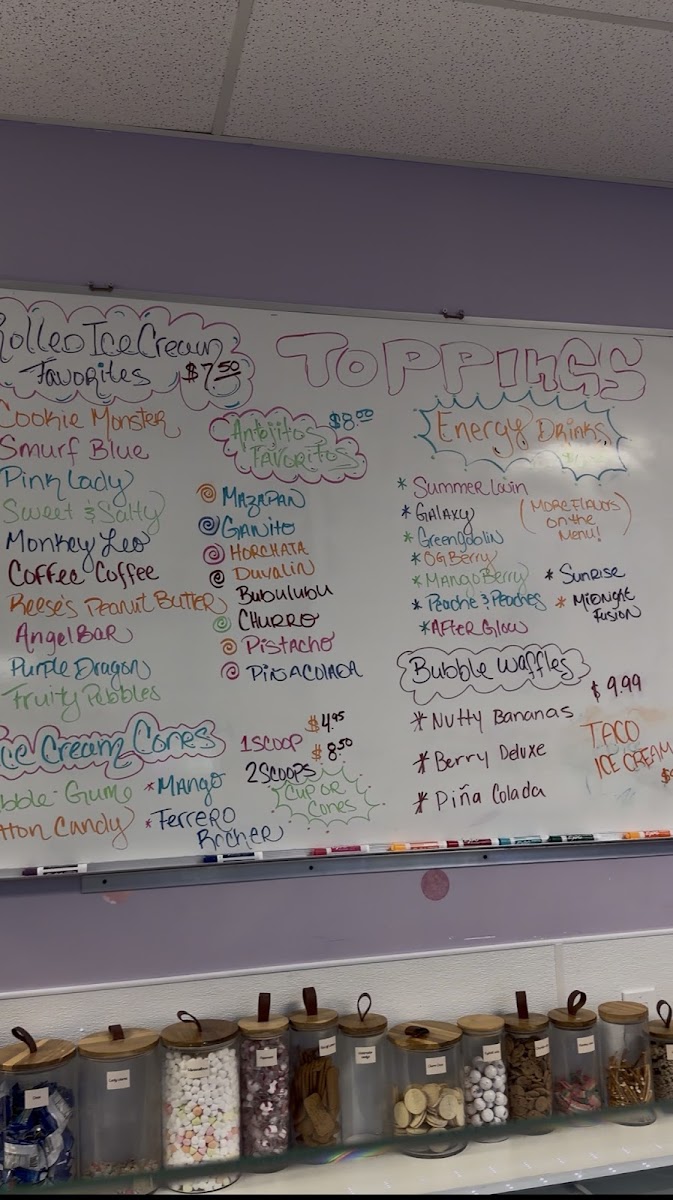 Rolled Ice Cream
Favorites $7.50
Cookie Monster
Smurf Blue
Pink Lady
Sweet & Salty
Monkey Leo
Coffee Coffee
Reese's Peanut Butter
Angel Bar
Purple Dragon
Fruity Pebbles
TOPPINGS
Antojitos $8.00
Favoritos
MAZAPAN
GANITO
HORCHATA
DUVALIN
BUBULUBU
CHURRO
PISTACHO
PIÑACOLADA
Energy Drinks
* Summer Lovin
* GALAXY
* Greengoblin
* OG Berry
* Mango Berry
* Peache & Peaches
* AFTER GLOW
(MORE FLAVORS
on the
Menu!)
* Sunrise
* MIDNIGHT
FUSION
Bubble Waffles
$9.99
* Nutty Bananas
* Berry Deluxe
* Piña Colada
TACO
ICE CREAM
Ice Cream Cones
bble-Gume
tton Candy
* Mango
* Ferrero
Rocher
1 SCOOP $4.95
2 SCOOPS $8.50
CUP OR
CONES